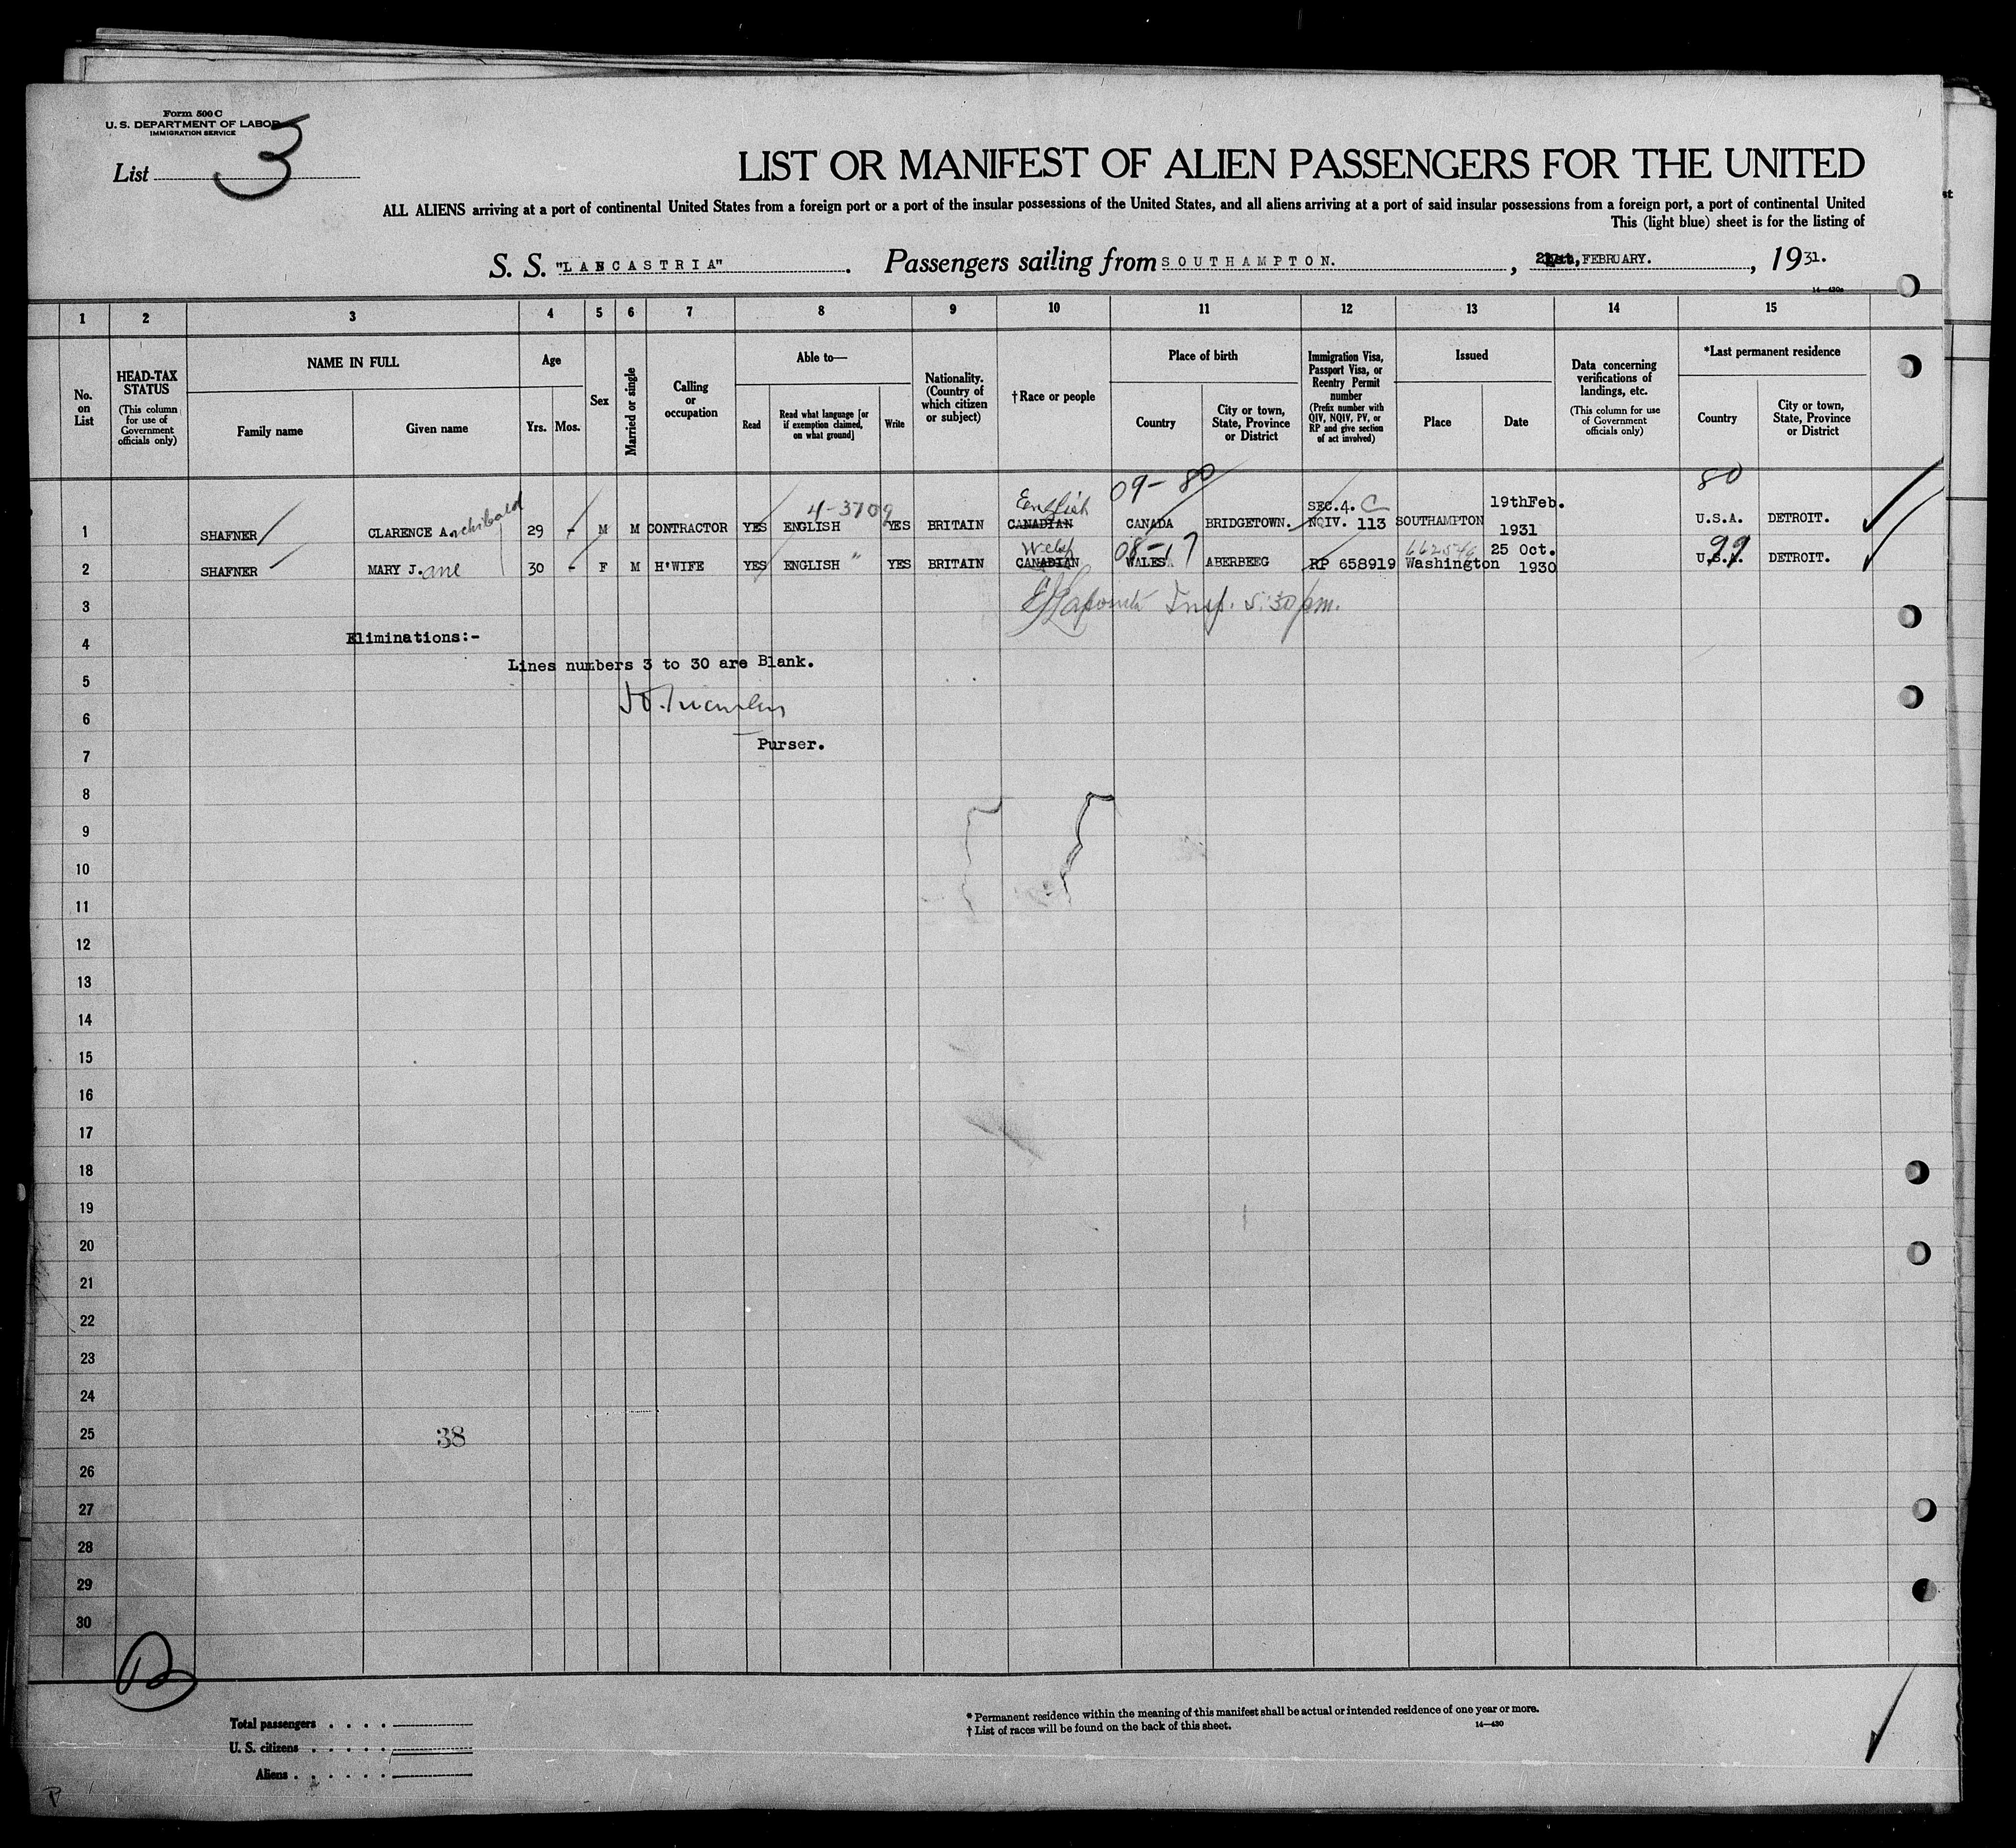 Form 500 C
U. S. DEPARTMENT OF LABOR
IMMIGRATION SERVICE
List 3
LIST OR MANIFEST OF ALIEN PASSENGERS FOR THE UNITED
ALL ALIENS arriving at a port of continental United States from a foreign port or a port of the insular possessions of the United States, and all aliens arriving at a port of said insular possessions from a foreign port, a port of continental United
This (light blue) sheet is for the listing of
S. S. "LANCASTRIA". Passengers sailing from SOUTHAMPTON. , FEBRUARY. , 1931.
14—430a
1 2 3 4 5 6 7 8 9 10 11 12 13 14 15
No. on List
HEAD-TAX STATUS (This column for use of Government officials only)
NAME IN FULL
Family name
Given name
Age
Yrs. Mos.
Sex
Married or single
Calling or occupation
Able to—
Read
Read what language [or if exemption claimed, on what ground]
Write
Nationality. (Country of which citizen or subject)
† Race or people
Place of birth
Country
City or town, State, Province or District
Immigration Visa, Passport Visa, or Reentry Permit number (Prefix number with QIV, NQIV, PV, or RP and give section of act involved)
Issued
Place
Date
Data concerning verifications of landings, etc. (This column for use of Government officials only)
*Last permanent residence
Country
City or town, State, Province or District
4-3709 English 09-80 SEC.4. C 19thFeb. 80
1 SHAFNER CLARENCE Archibald 29 - M M CONTRACTOR YES ENGLISH YES BRITAIN CANADIAN CANADA BRIDGETOWN. NQIV. 113 SOUTHAMPTON 1931 U.S.A. DETROIT.
08-17 25 Oct. 99
2 SHAFNER MARY J.ane 30 - F M H'WIFE YES ENGLISH " YES BRITAIN CANADIAN WALES ABERBEEG RP 658919 Washington 1930 U.S.A. DETROIT.
3 Insp. 5:30 pm.
4 Eliminations:-
Lines numbers 3 to 30 are Blank.
5
6
7 Purser.
8
9
10
11
12
13
14
15
16
17
18
19
20
21
22
23
24
25 38
26
27
28
29
30
Total passengers . . . .
U. S. citizens . . . . . .
Aliens . . . . . .
* Permanent residence within the meaning of this manifest shall be actual or intended residence of one year or more.
† List of races will be found on the back of this sheet. 14—430